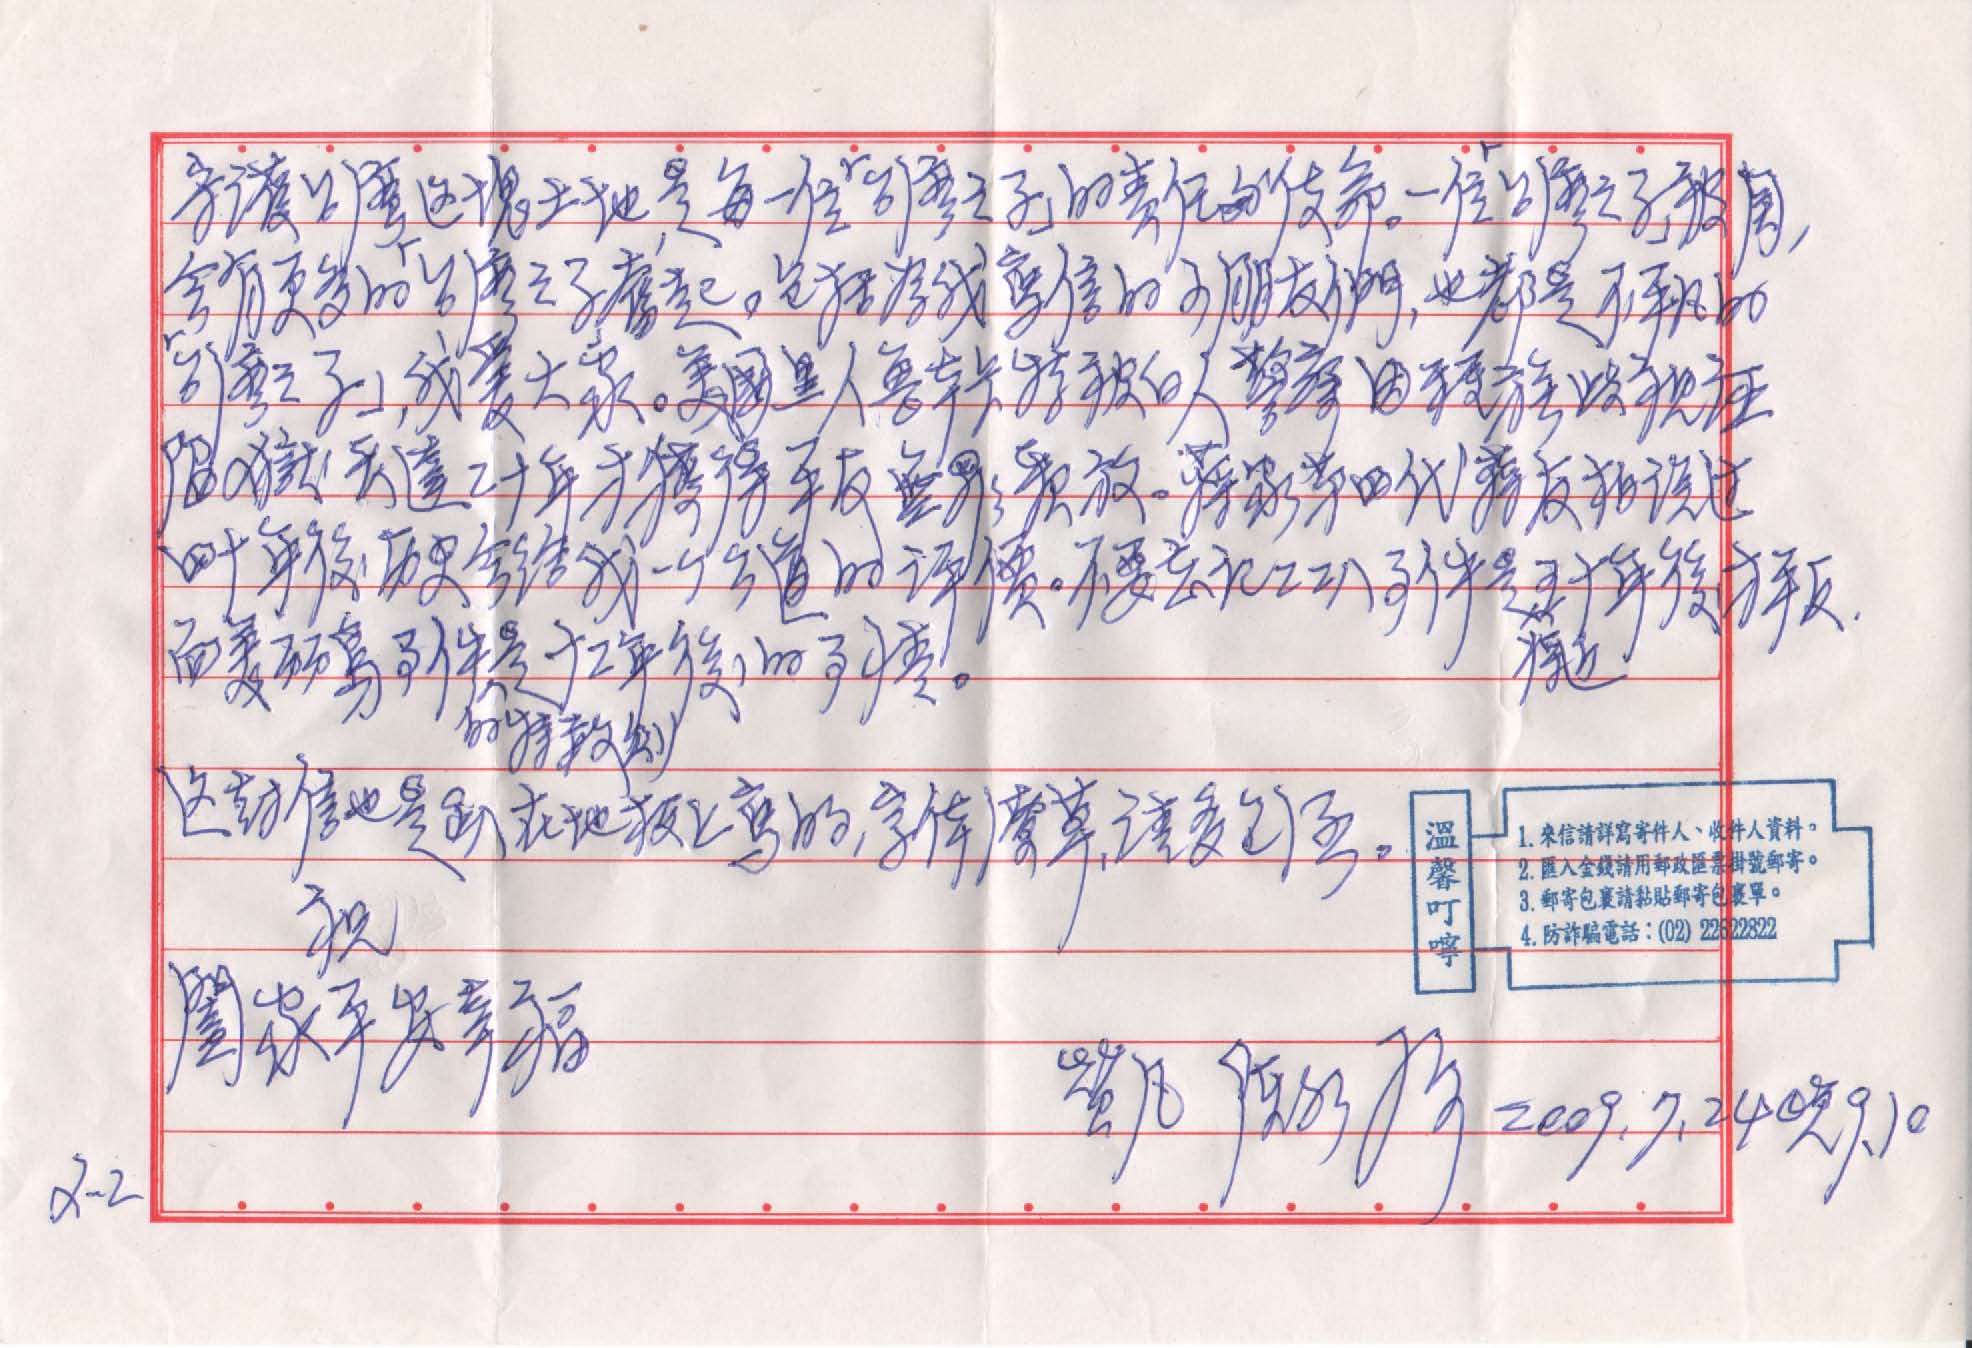 守護台灣这塊土地,是每一位「台灣之子」的責任與使命。一位「台灣之子」被關,
会有更多的「台灣之子」奮起。包括為我寫信的小朋友們,也都是不平凡的
「台灣之子」,我愛大家。美國黑人魯卡特被白人警察因種族歧視誣
陷入獄,長達二十年才獲得平反無罪釋放。蔣家第四代蔣友柏說過
四十年後,历史会給我一个公道的評價。不要忘記二二八事件是將近五十年後,才平反.
而美丽島事件的特赦則是十二年後的事情。
这封信也是趴在地板上寫的,字体潦草,請多包涵。
祝
闔家平安幸福
凱凡 陳水扁 2009.7.24晚9.10
2-2
溫馨叮嚀
1. 來信請詳寫寄件人、收件人資料。
2. 匯入金錢請用郵政匯票掛號郵寄。
3. 郵寄包裹請黏貼郵寄包裹單。
4. 防詐騙電話:(02) 22622822